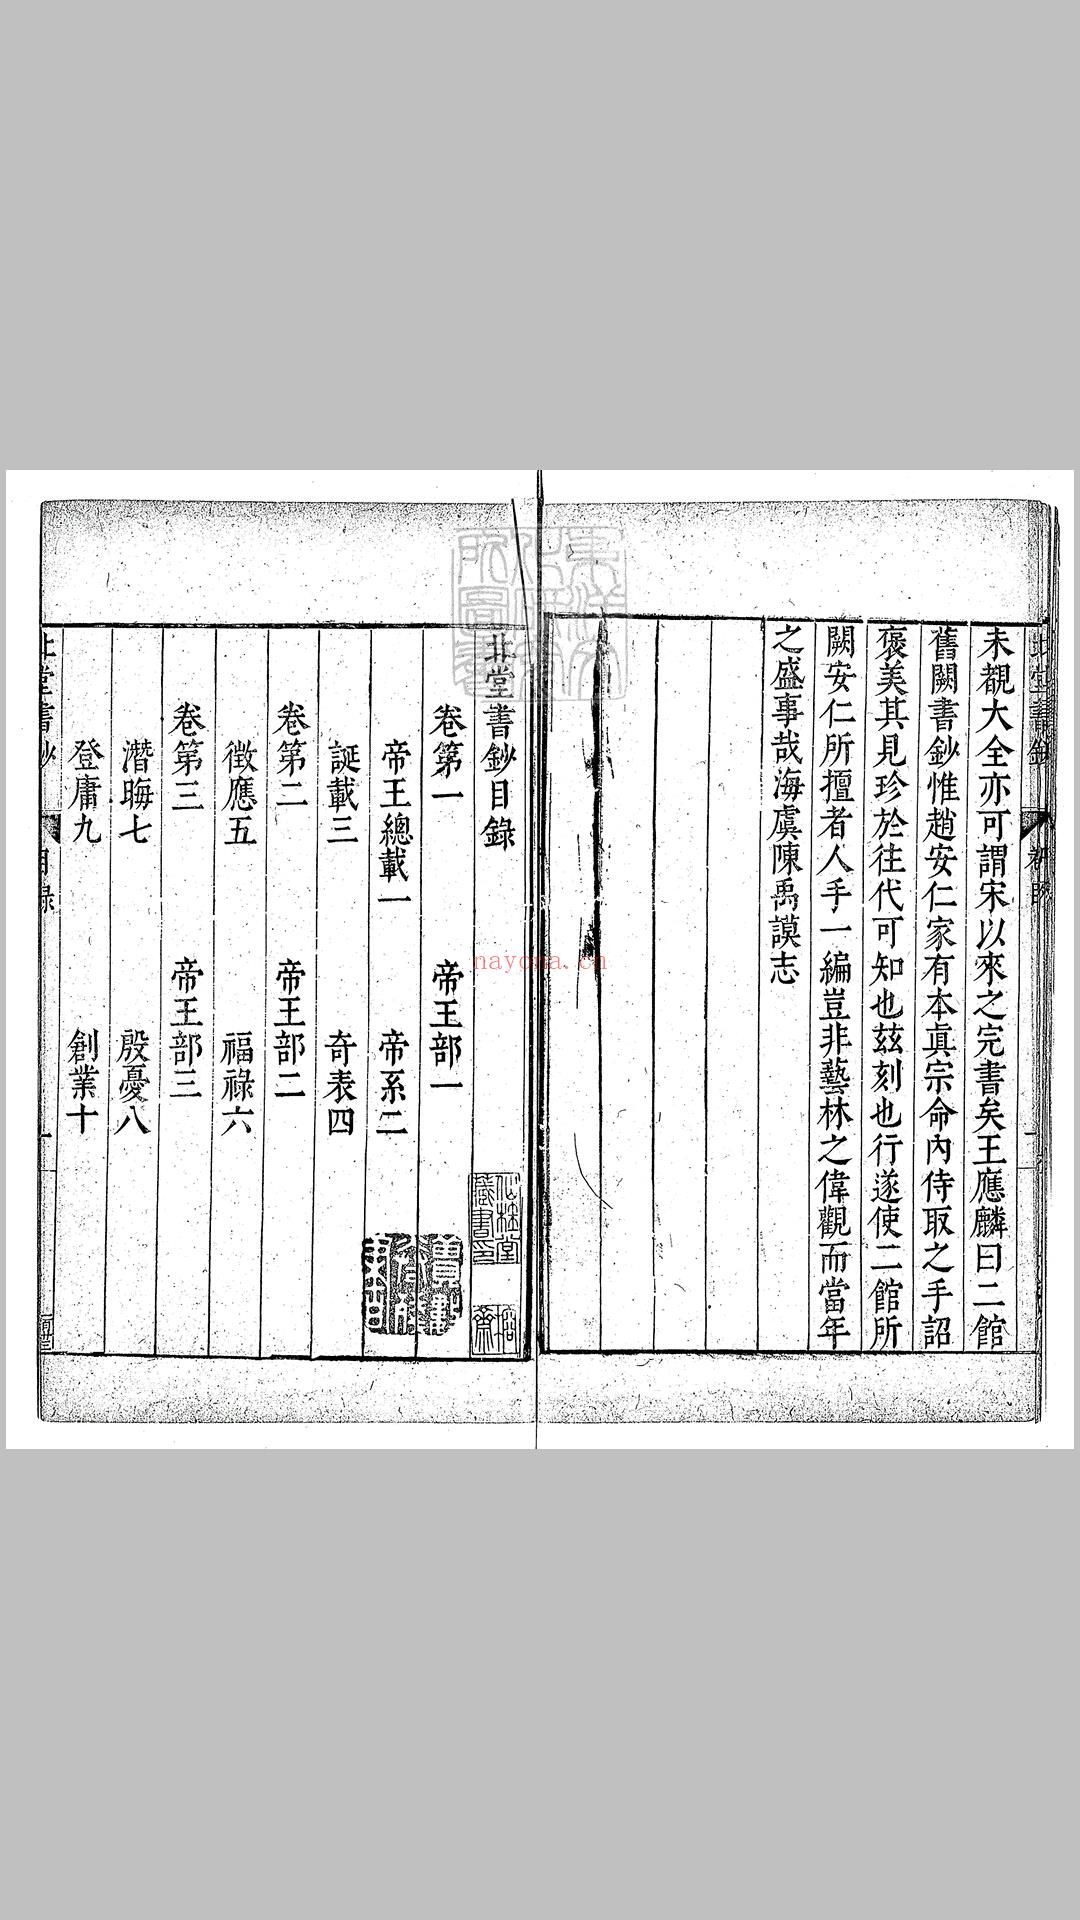 未覩大全亦可謂宋以來之完書矣王應麟曰二館
舊闕書鈔惟趙安仁家有本真宗命內侍取之手詔
褒美其見珍於往代可知也茲刻也行遂使二館所
闕安仁所擅者人手一編豈非藝林之偉觀而當年
之盛事哉海虞陳禹謨志
北堂書鈔目錄
卷第一 帝王部一
帝王總載一 帝系二
誕載三 奇表四
卷第二 帝王部二
徵應五 福祿六
卷第三 帝王部三
潛晦七 殷憂八
登庸九 創業十
北堂書鈔 目錄 一
nayona.cn